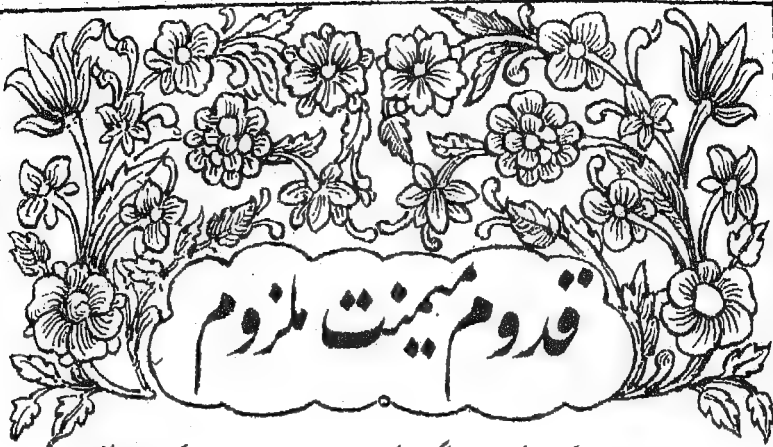 قدوم میمنت ملزوم